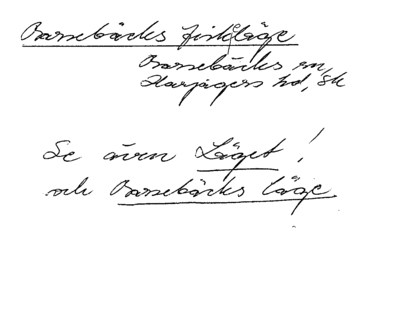 Barsebäcks fiskläge
Barsebäcks sn,
Harjagers hd, Sk
Se även Läget!
och Barsebäcks läge